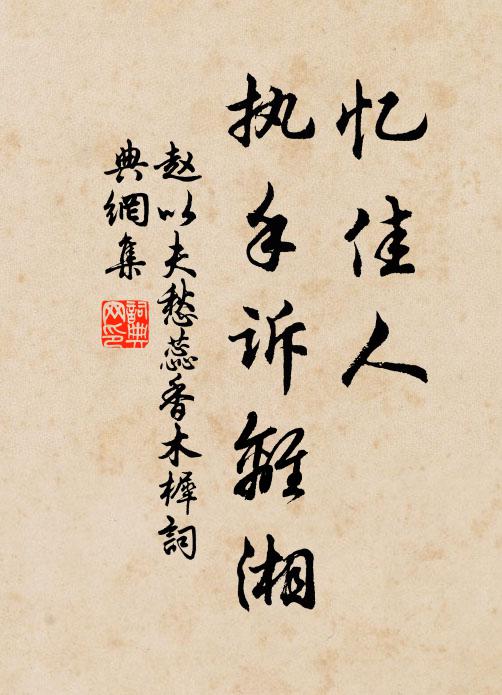 忆佳人
执手诉離湘
赵以夫愁蕊香木樨詞
典網集
詞典
网印